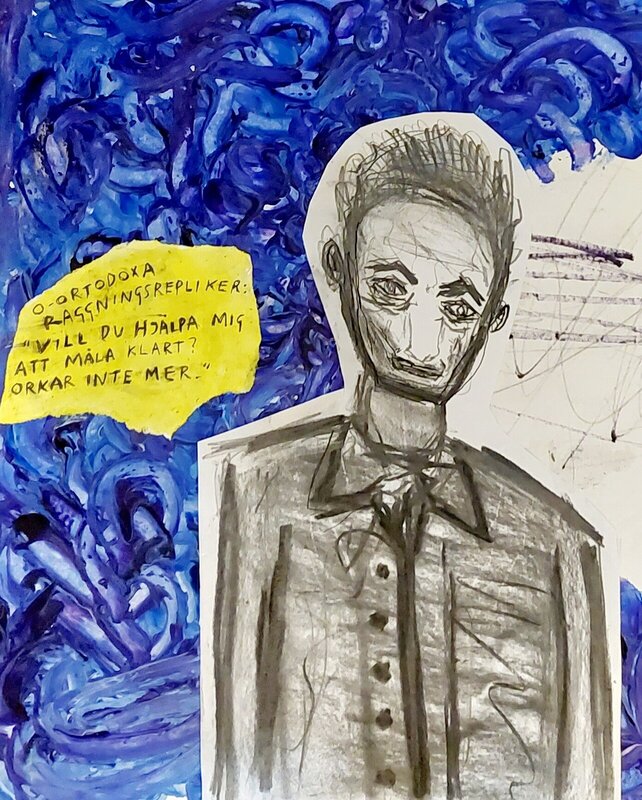 O-ORTODOXA
RAGGNINGSREPLIKER:
"VILL DU HJÄLPA MIG
ATT MÅLA KLART?
ORKAR INTE MER."